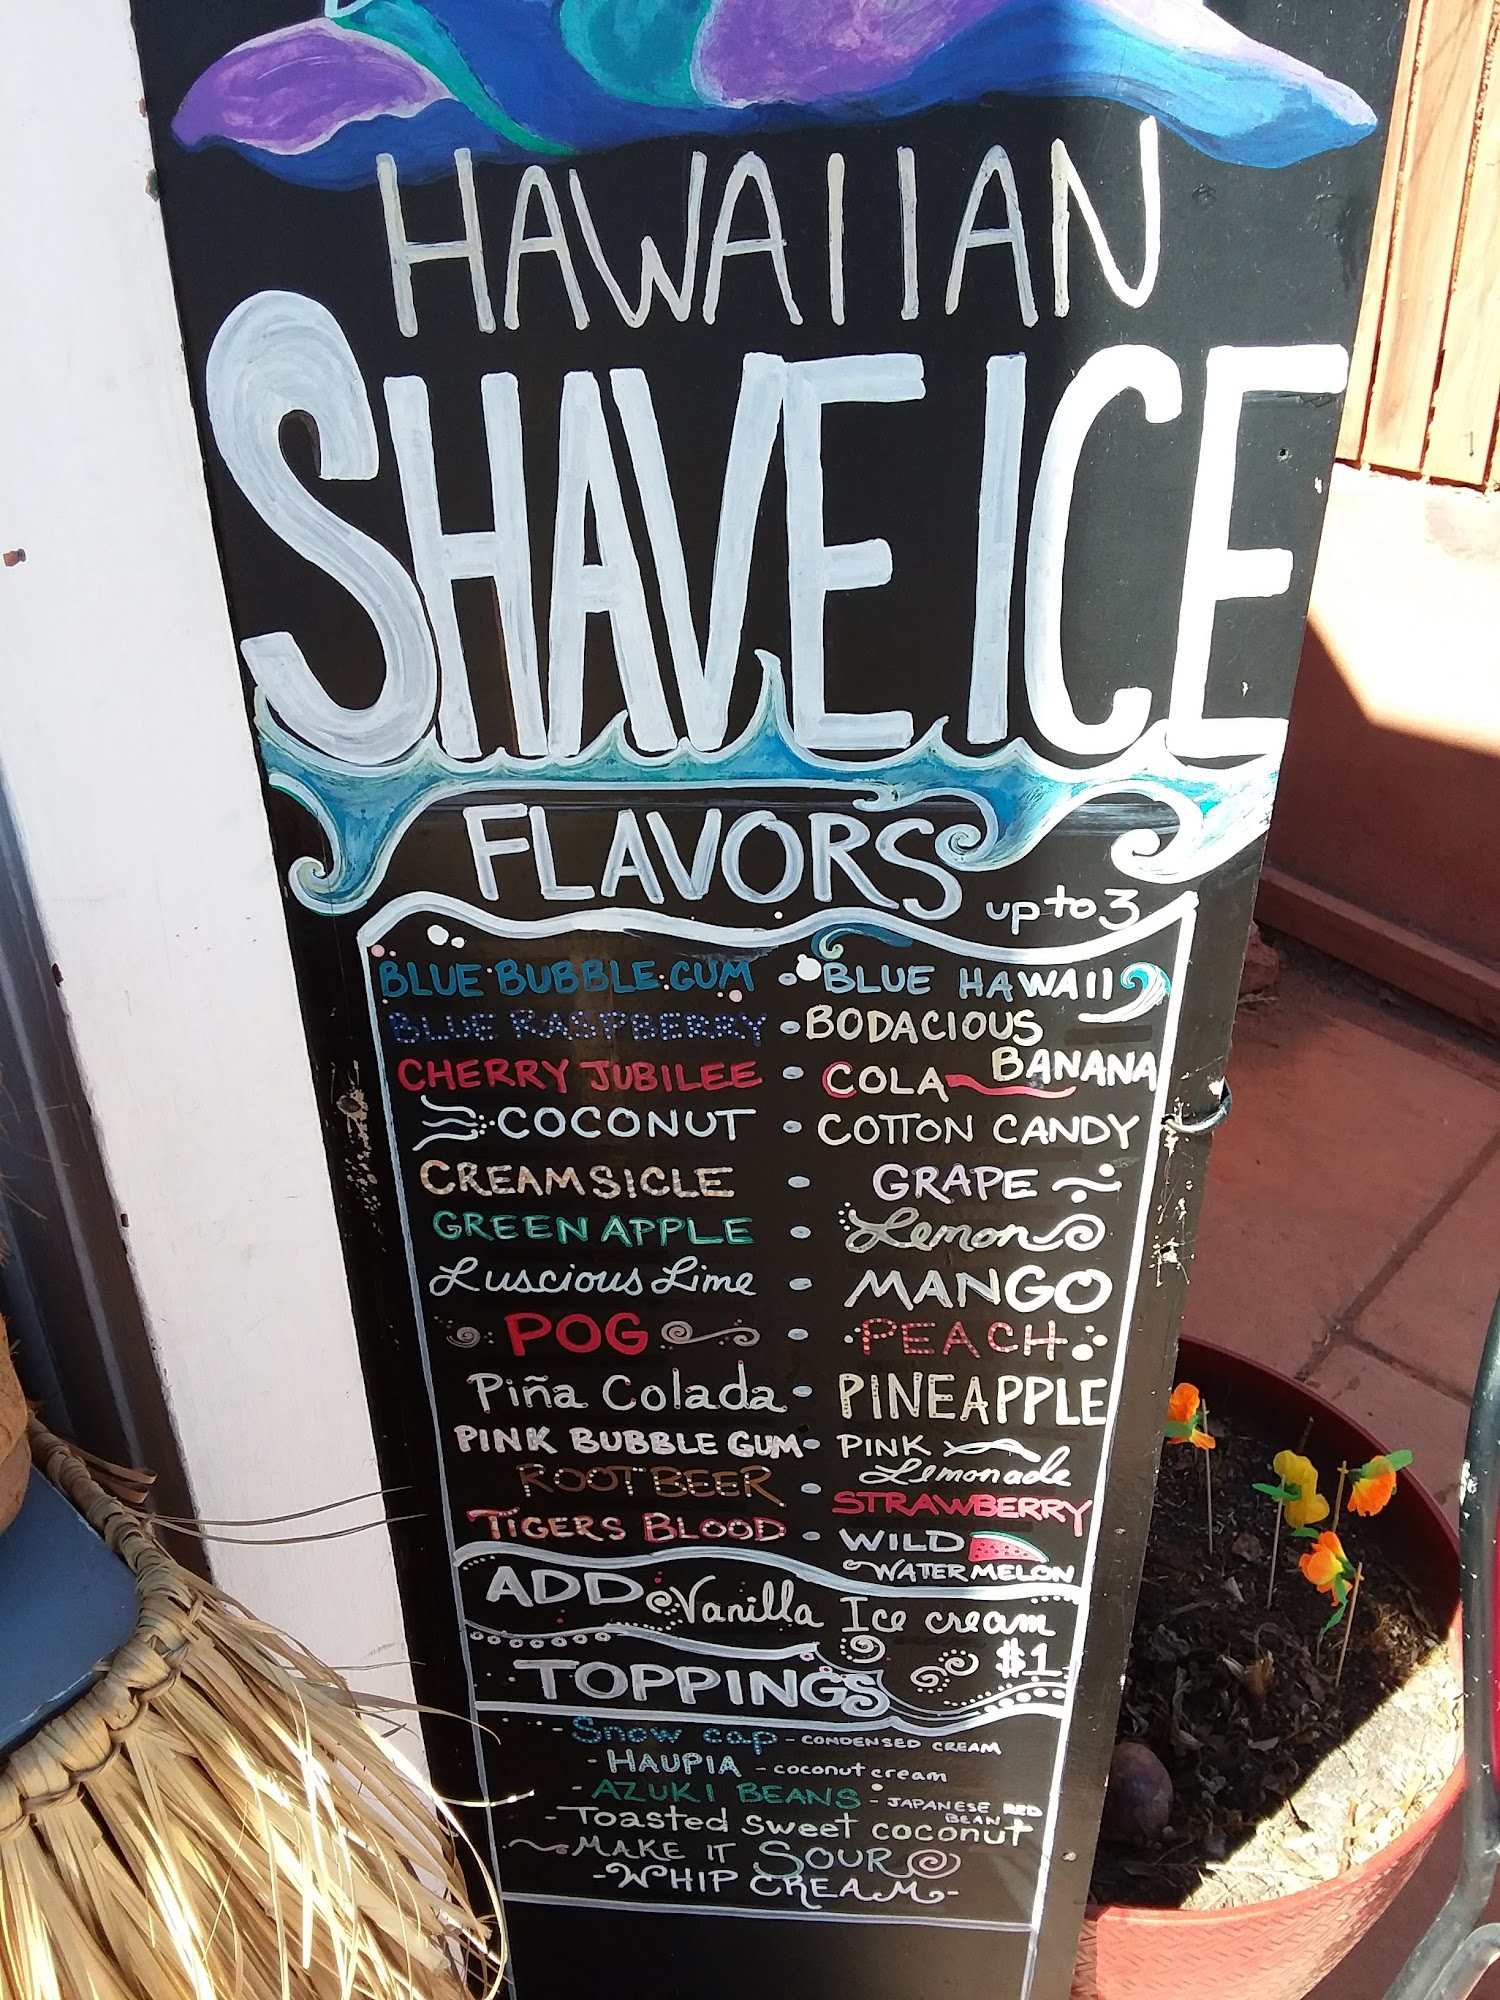 HAWAIIAN
SHAVE ICE
FLAVORS up to 3
BLUE BUBBLE GUM • BLUE HAWAII
BLUE RASPBERRY • BODACIOUS BANANA
CHERRY JUBILEE • COLA
COCONUT • COTTON CANDY
CREAMSICLE • GRAPE
GREEN APPLE • Lemon
Luscious Lime • MANGO
POG • PEACH
Piña Colada • PINEAPPLE
PINK BUBBLE GUM • PINK Lemonade
ROOT BEER • STRAWBERRY
TIGERS BLOOD • WILD WATERMELON
ADD Vanilla Ice cream $1
TOPPINGS
- Snow cap - CONDENSED CREAM
- HAUPIA - coconut cream
- AZUKI BEANS - JAPANESE RED BEAN
- Toasted sweet coconut
MAKE IT SOUR
- WHIP CREAM -